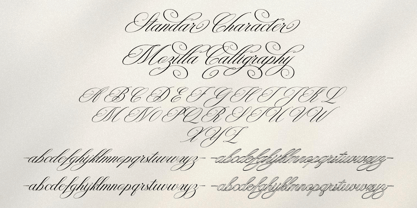 Standar Character
Mozilla Calligraphy
A B C D E F G H I J K L
M N O P Q R S T U V W
X Y Z
abcdefghyklmnopqrstuvwxyz abcdefghyklmnopqrstuvwxyz
abcdefghyklmnopqrstuvwxyz abcdefghyklmnopqrstuvwxyz